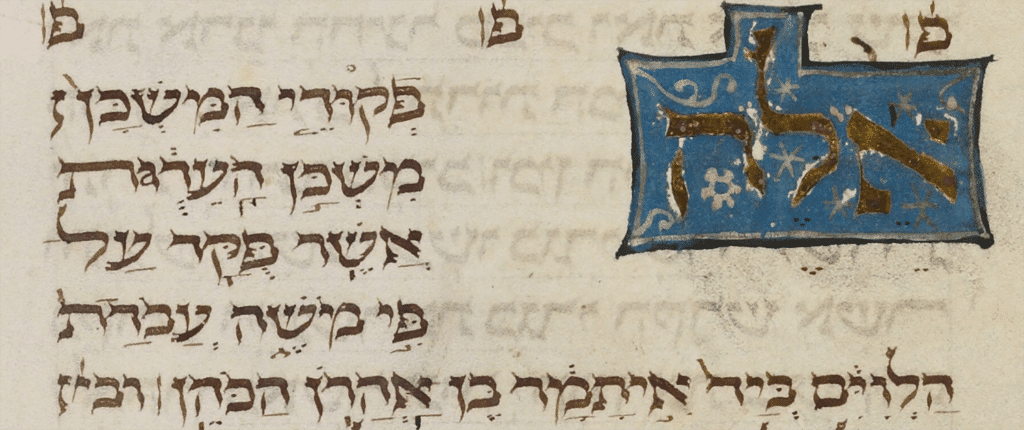 פ פ פ
אֵלֶּה
פְקוּדֵי הַמִּשְׁכָּן
מִשְׁכַּן הָעֵדֻת
אֲשֶׁר פֻּקַּד עַל
פִּי מֹשֶׁה עֲבֹדַת
הַלְוִיִּם בְּיַד אִיתָמָר בֶּן אַהֲרֹן הַכֹּהֵן